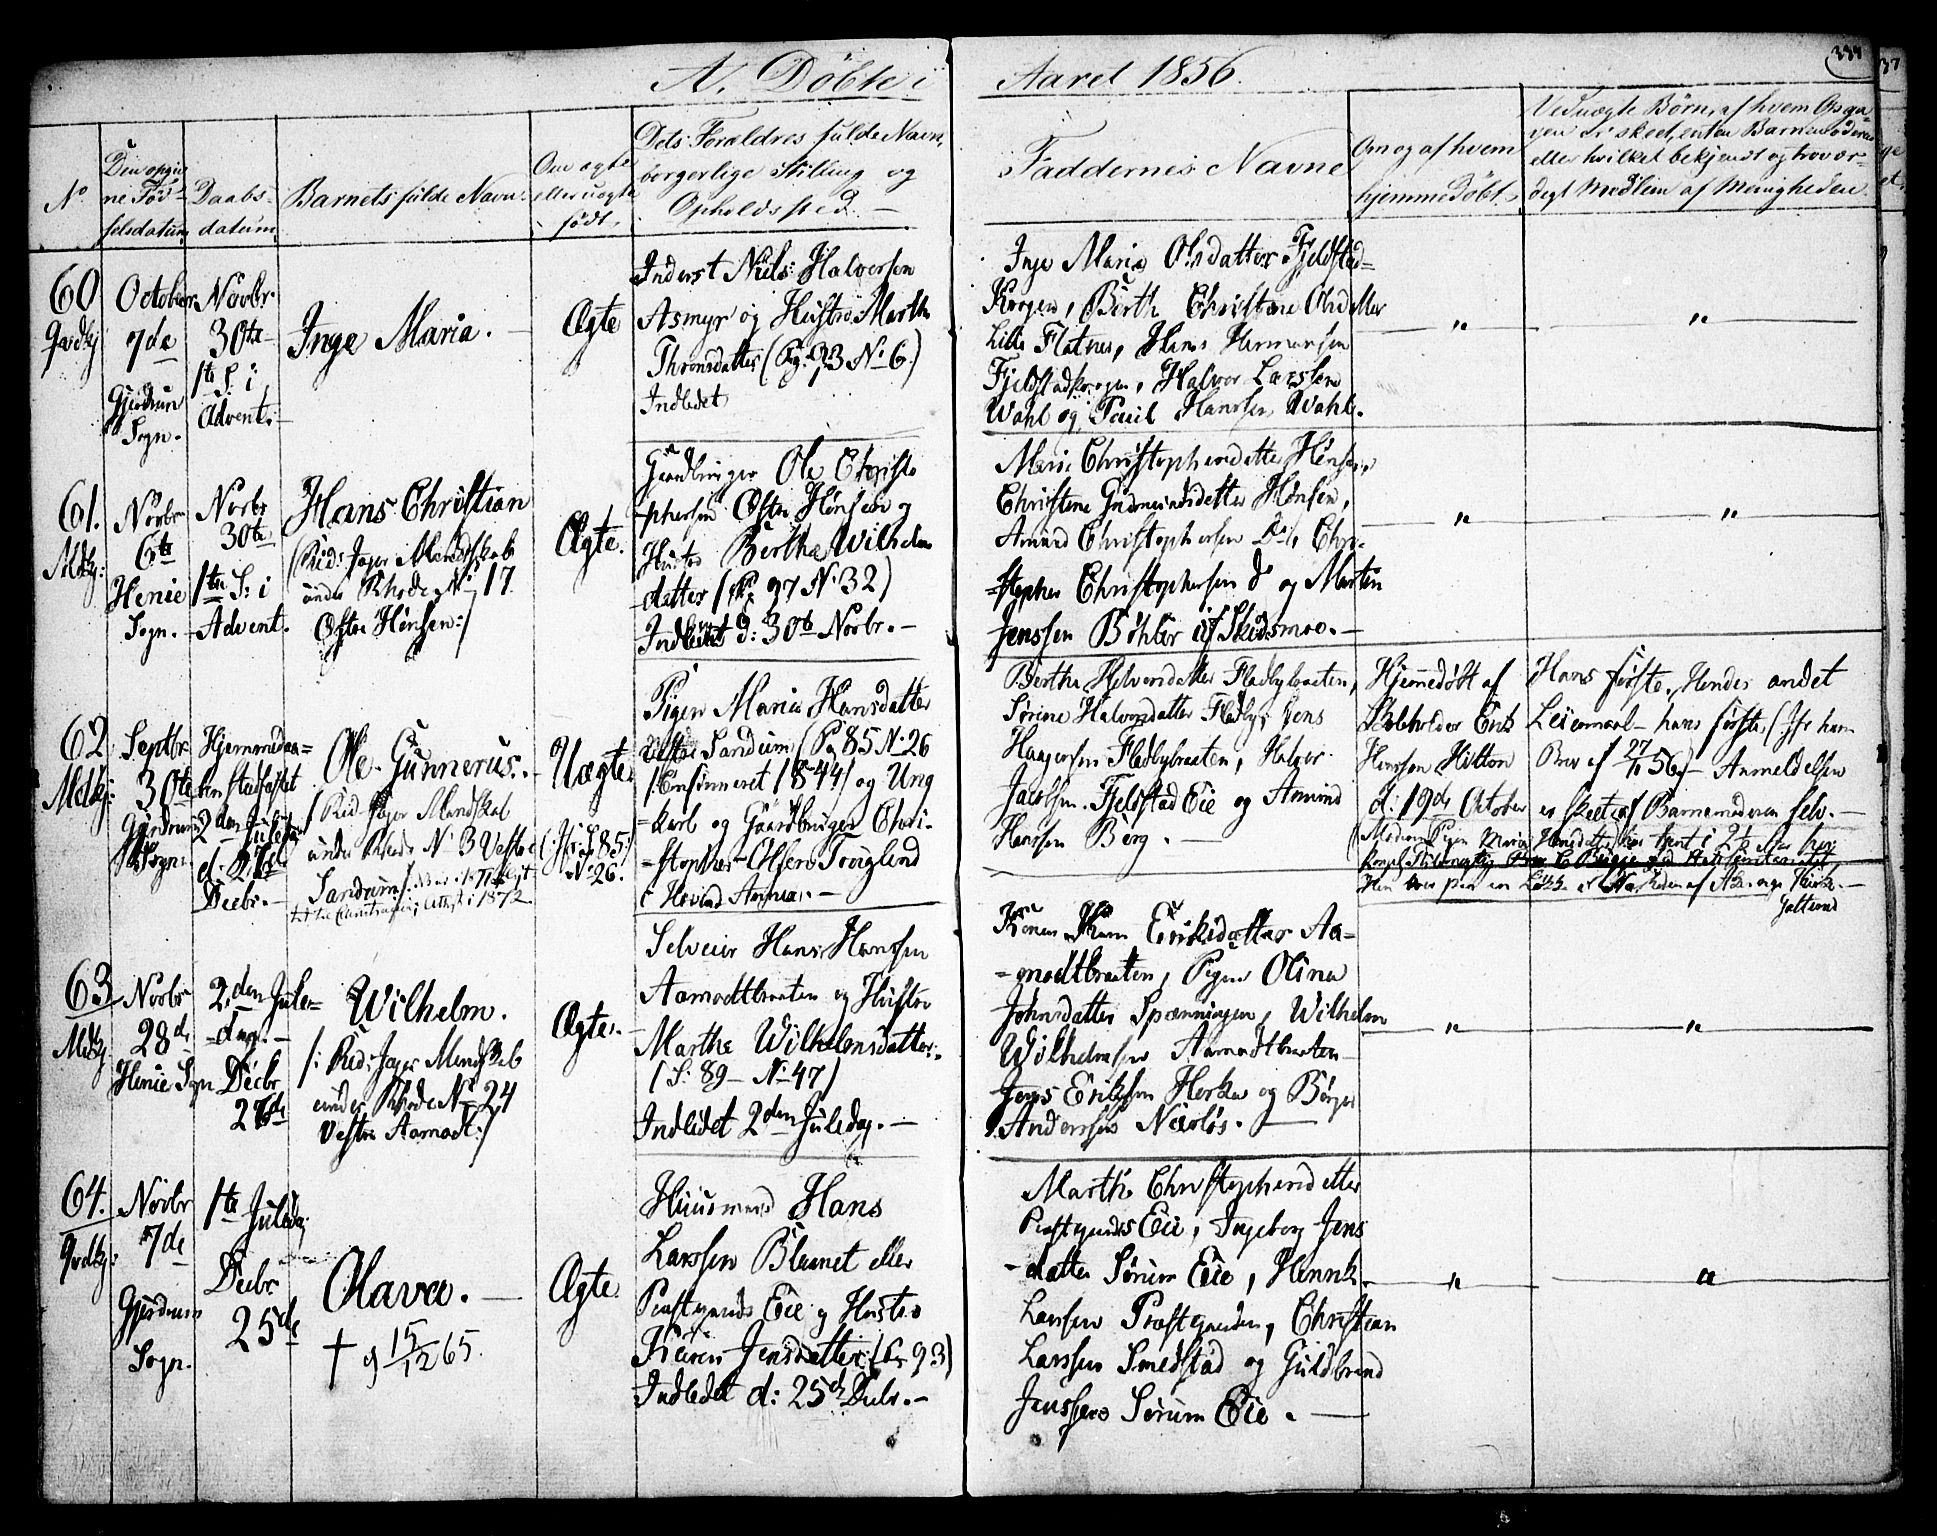 A. Döbte i Aaret 1856.
334
37
No
Den opgiv
ne Föd-
selsdatum
Daabs-
datum
Barnets fulde Navn.
Om ægte
eller uægte
födt.
Dets Forældres fulde Navn,
borgerlige Stilling og
Opholdssted. —
Faddernes Navne
Om og af hvem
hjemmedöbt.
Ved uægte Börn, af hvem Opga-
ven er skeet, enten Barnemoderen
eller hvilket bekjendt og trovær-
digt Medlem af Menigheden.
60
October
7de
Gjerdrum
Sogn.
Novbr.
30te
1te S. i
Advent. —
Inge Maria. —
Ægte
Inderst Niels Halvorsen
Asmyr og Hustro Marthe
Thronsdatter (Pg. 93 No 6.)
Indledet
Inge Maria Olsdatter Fjeldstad-
Krogen, Berth Christiane Olsdatter
Lille Flatner, Hans Hermansen
Fjeldstadkrogen, Halvor Larssen
Wahl og Paul Hanssen Wahl.
— " —
— " —
61.
Mdkj:
Novbr
6te
Henie
Sogn. —
Novbr
30te
1te S: i
Advent.
Hans Christian
(Rid: Jæger Mandskab
under Rhode No 17
Østre Hönsen:/
Ægte.
Gaardbruger Ole Christo
-phersen Østre Hönsen og
Hustro Berthe Wilhelms
datter (Pg 97 No 32)
Indledet d: 30te Novbr. —
Marie Christophersdatter Hönsen,
Christine Gudmundsdatter Hönsen,
Amund Christophersen Do, Chri-
-stopher Christophersen do og Morten
Jenssen Böhler af Skedsmoe. —
— " —
— " —
62
Mdkj:
Septbr
30te
Gjerdrum
Sogn.
Hjemmedaa-
ben stadfæstet
2den Juledag
d. 26de
Decbr. —
Ole Gunnerus. —
/ Rid. Jæger Mandskab
under Rhode No 3 Vestre
Sandum/.
1872
Uægte
(Jfr: S. 85.
No 26.
Pigen Maria Hansdatter
Vestre Sandum (Pg 85 No 26
/: Confirmeret 1844/ og Ung
-karl og Gaardbruger Chri-
-stopher Olsen Tuglend
i Höland Annex. —
Berthe Halvorsdatter Fladbybraaten,
Sörine Halvorsdatter Fladby, Jens
Haagensen Fladbybraaten, Halvor
Jacobsen Fjeldstad Eie og Amund
Hansen Berg. —
Hjemmedöbt af
Skoleholder Erik
Hanssen Hilton
d: 19de October
Hans förste, Hendes andet
Leiermaal — hans förste, (Jfr hans
Brev af 27/11 56.) — Anmeldelsen
er skeet af Barnemoderen selv. —
63
Mdkj.
Novbr
28de
Henie Sogn
2den Jule-
-dag. —
Decbr
26de
Wilhelm.
/: Rid: Jæger Mandskab
under Rhode No 24
Vestre Aamodt:/
Ægte. —
Selveier Hans Hansen
Aamodtbraaten og Hustro
Marthe Wilhelmsdatter.
/ S: 89 — No 47/
Indledet 2den Juledag. —
Konen Karen Eriksdatter Aa-
-modtbraaten, Pigen Olina
Johnsdatter Spænningen, Wilhelm
Wilhelmsen Aamodtbraaten
Jens Eriksen Herker og Börger
Andersen Næslös. —
— " —
— " —
64.
Novbr
7de
Gjerdrum
Sogn.
1te Juledag.
Decbr
25de
Olava. —
† 9 15/12 65.
Ægte.
Huusmand Hans
Larssen Blumet eller
Præstgaards Eie og Hustro
Karen Jensdatter. (Pg 93)
Indledet d: 25de Decbr. —
Marthe Christophersdatter
Præstgaards Eie, Ingeborg Jens
-datter Sörum Eie, Henrik
Larssen Præstgaarden, Christian
Larssen Smedstad og Guldbrand
Jenssen Sörum Eie. —
— " —
— " —